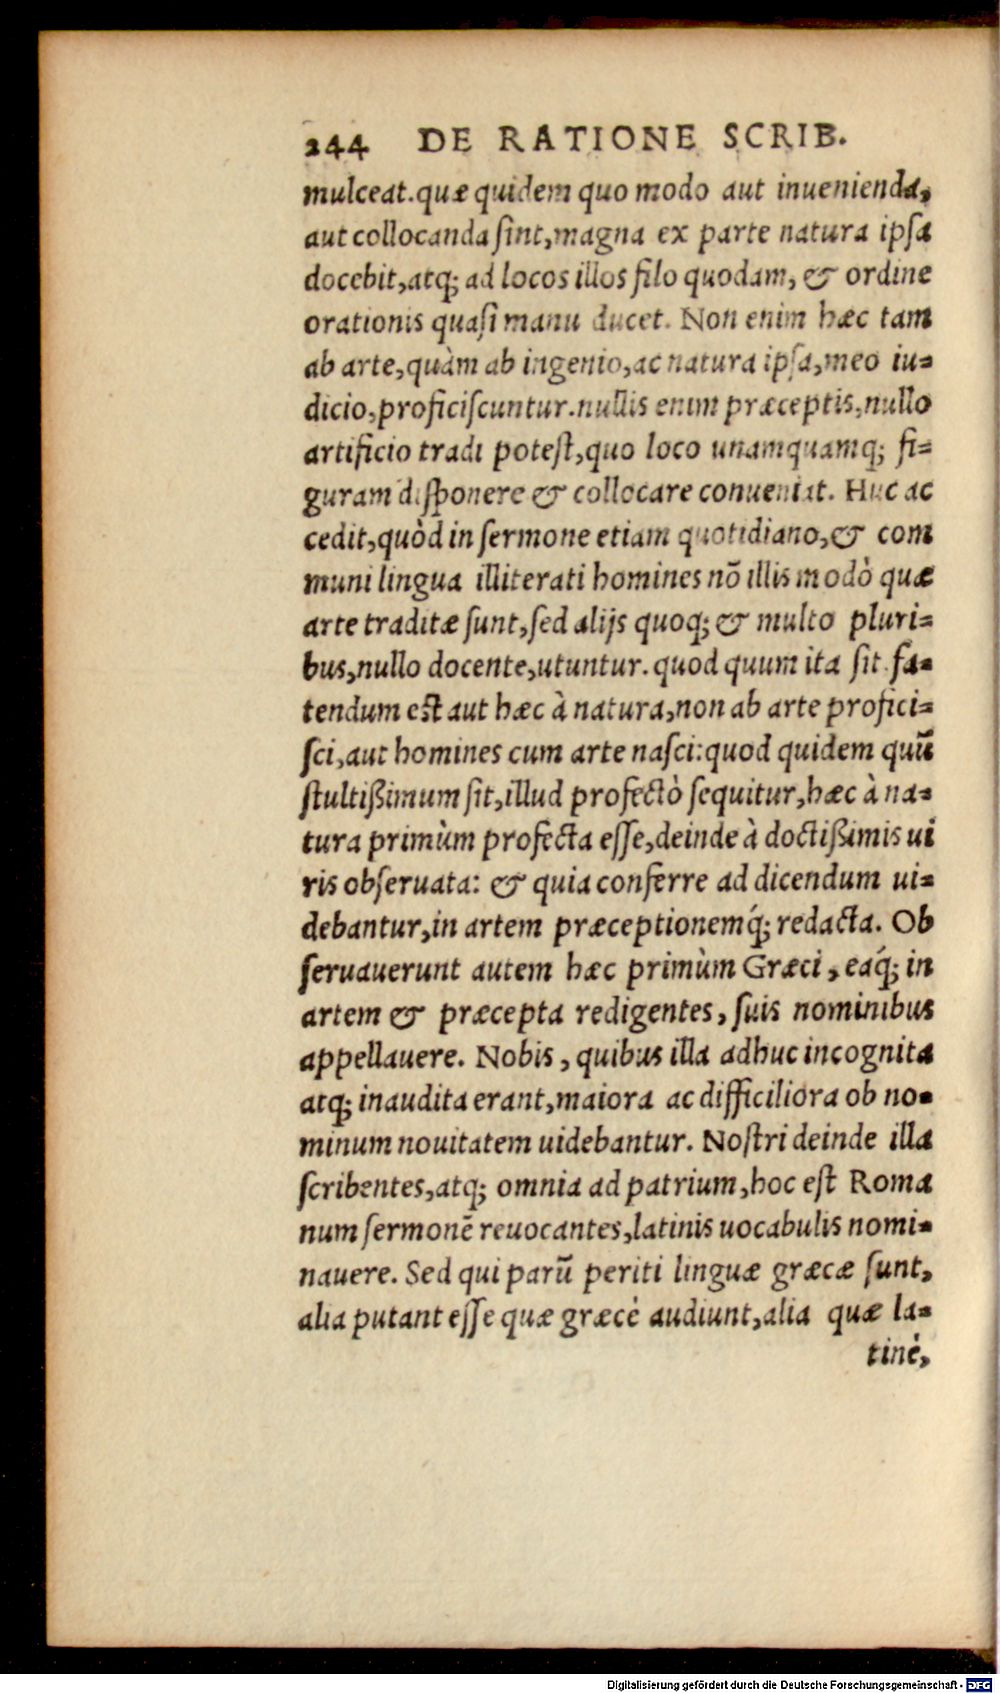 244 DE RATIONE SCRIB.
mulceat. quæ quidem quo modo aut inuenienda,
aut collocanda ſint, magna ex parte natura ipſa
docebit, atq; ad locos illos filo quodam, & ordine
orationis quaſi manu ducet. Non enim hæc tam
ab arte, quàm ab ingenio, ac natura ipſa, meo iu=
dicio, proficiſcuntur. nullis enim præceptis, nullo
artificio tradi poteſt, quo loco unamquamq; fi=
guram diſponere & collocare conueniat. Huc ac
cedit, quòd in ſermone etiam quotidiano, & com
muni lingua illiterati homines nō illis modò quæ
arte traditæ ſunt, ſed alijs quoq; & multo pluri=
bus, nullo docente, utuntur. quod quum ita ſit. fa=
tendum eſt aut hæc à natura, non ab arte profici=
ſci, aut homines cum arte naſci: quod quidem quū
ſtultißimum ſit, illud profectò ſequitur, hæc à na=
tura primùm profecta eſſe, deinde à doctißimis ui
ris obſeruata: & quia conferre ad dicendum ui=
debantur, in artem præceptionemq́; redacta. Ob
ſeruauerunt autem hæc primùm Græci, eaq́; in
artem & præcepta redigentes, ſuis nominibus
appellauere. Nobis, quibus illa adhuc incognita
atq; inaudita erant, maiora ac difficiliora ob no=
minum nouitatem uidebantur. Noſtri deinde illa
ſcribentes, atq; omnia ad patrium, hoc eſt Roma
num ſermonē reuocantes, latinis uocabulis nomi=
nauere. Sed qui parū periti linguæ græcæ ſunt,
alia putant eſſe quæ græcè audiunt, alia quæ la=
tinè,
Digitalisierung gefördert durch die Deutsche Forschungsgemeinschaft - DFG